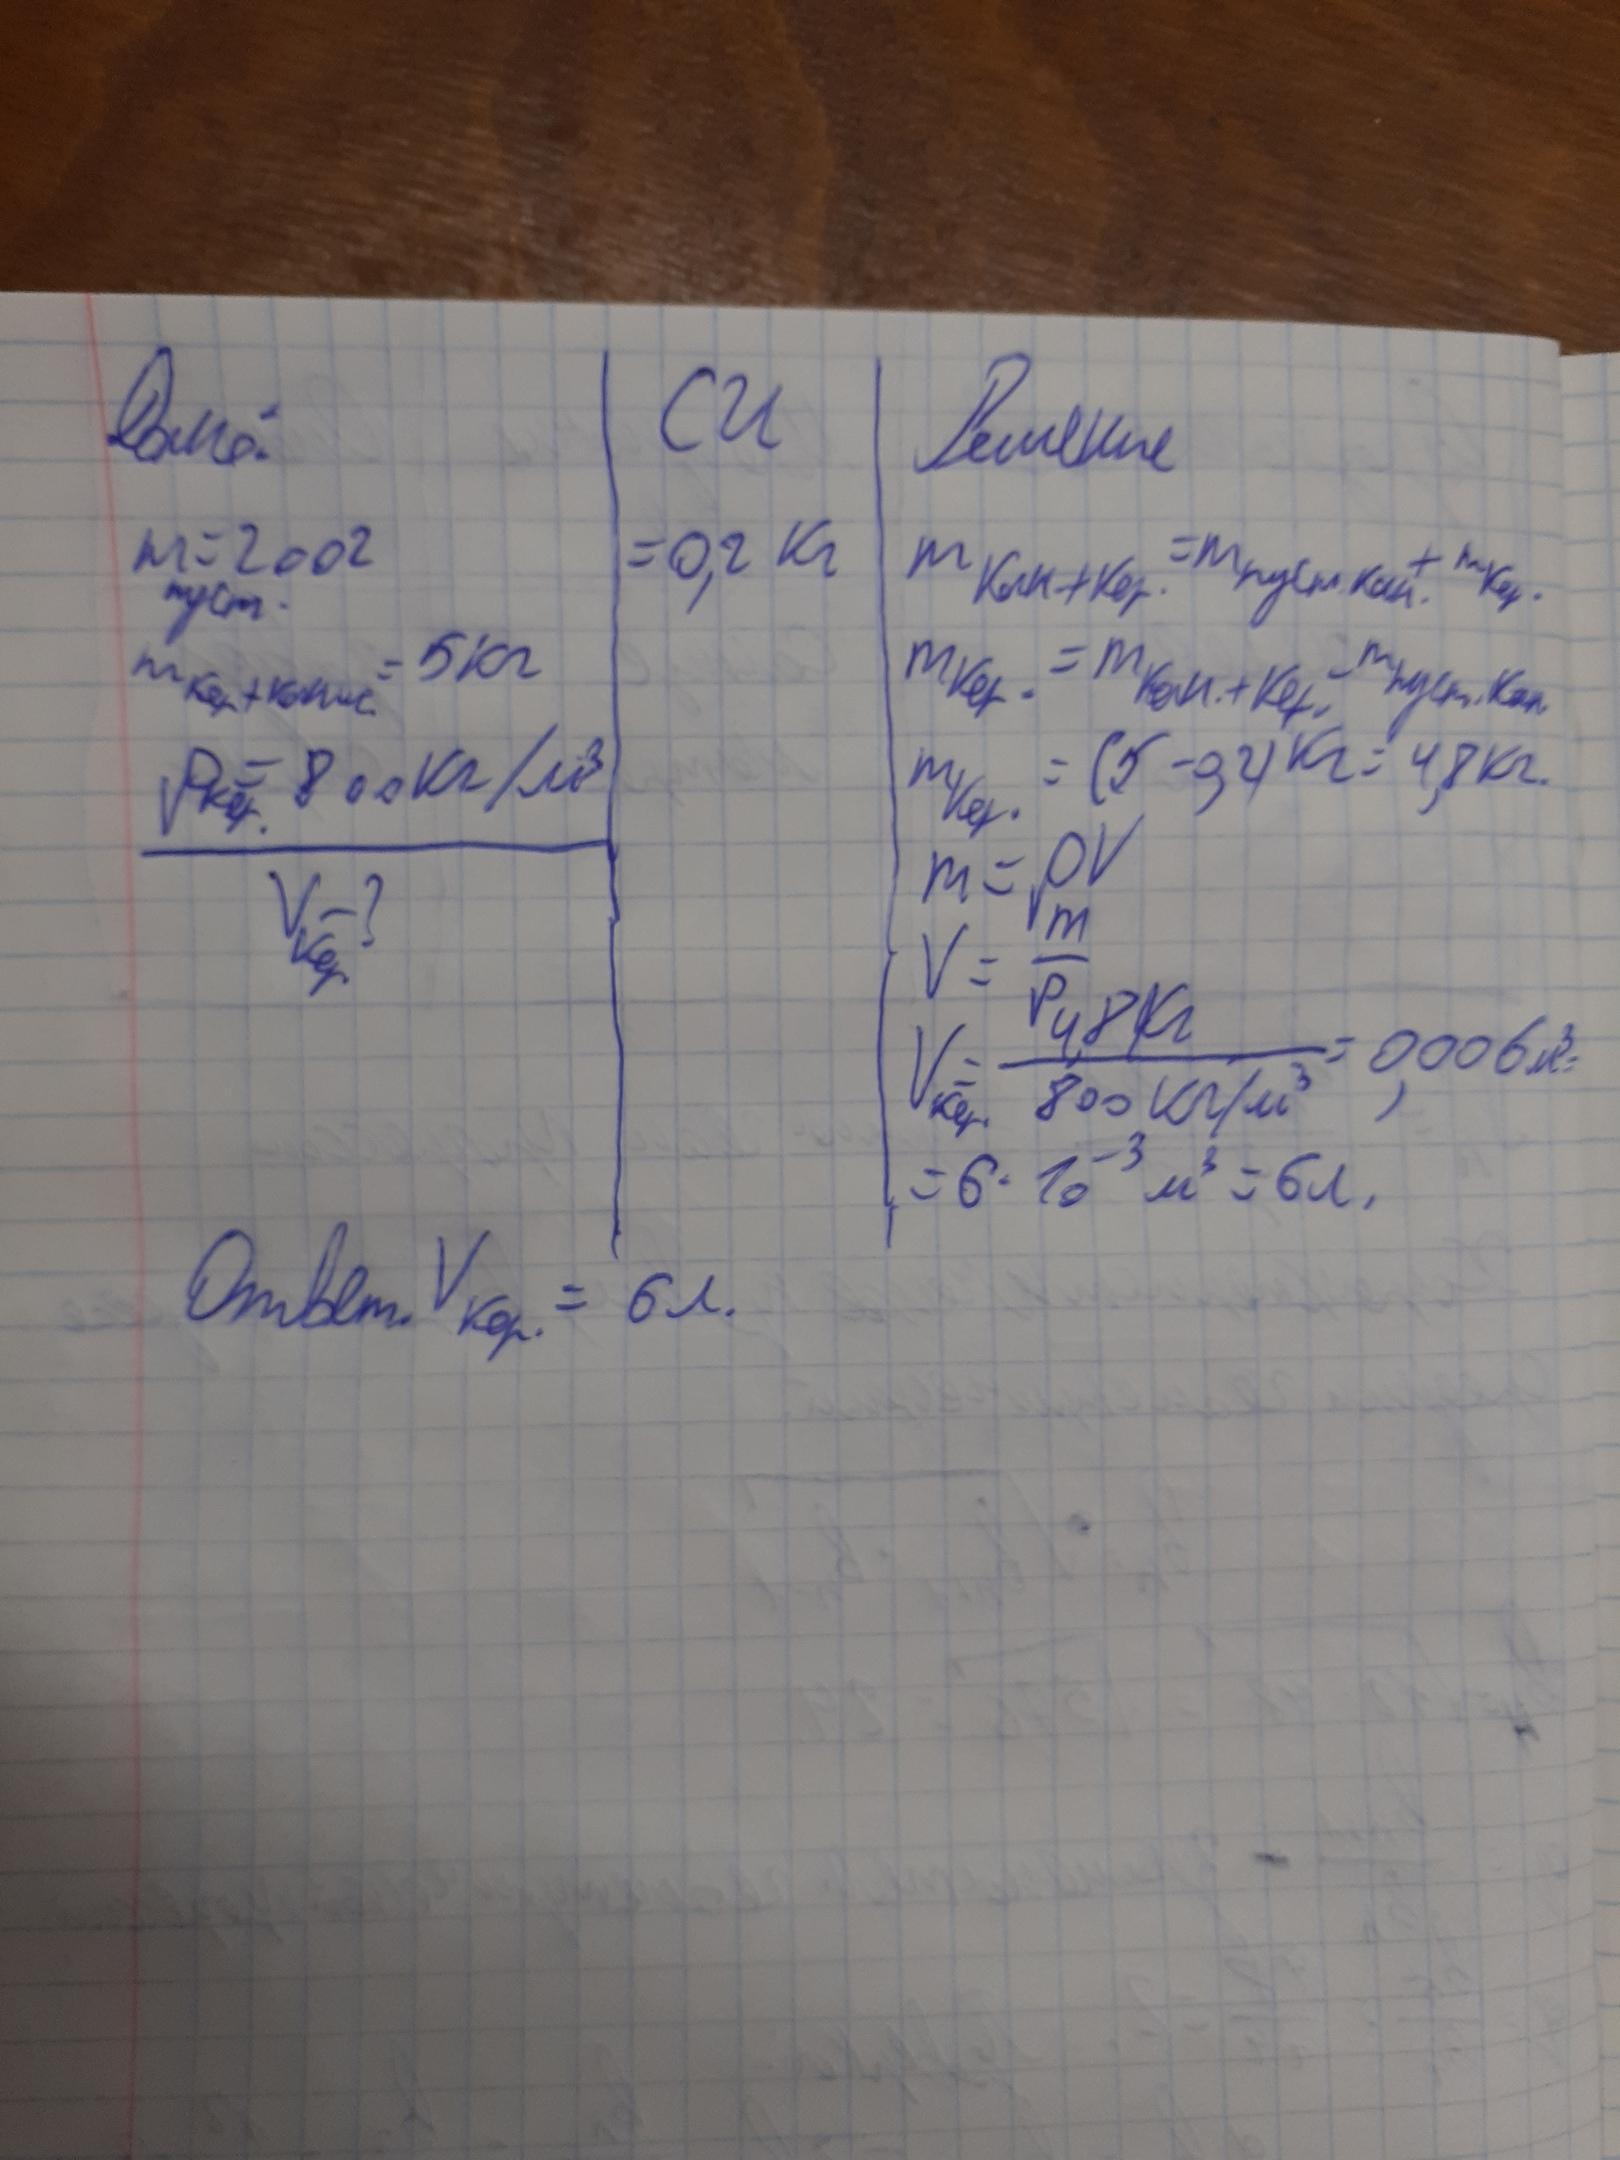 Дано:
m пуст. = 200г
m кер.+канис. = 5кг
ρ кер. = 800кг/м³
V кер. - ?
СИ
= 0,2 кг
Решение
m кан.+кер. = m пуст.кан. + m кер.
m кер. = m кан.+кер. - m пуст.кан.
m кер. = (5 - 0,2) кг = 4,8 кг.
m = ρV
V = m/ρ
V кер. = 4,8 кг / 800 кг/м³ = 0,006 м³ =
= 6 · 10⁻³ м³ = 6л.
Ответ. V кер. = 6 л.